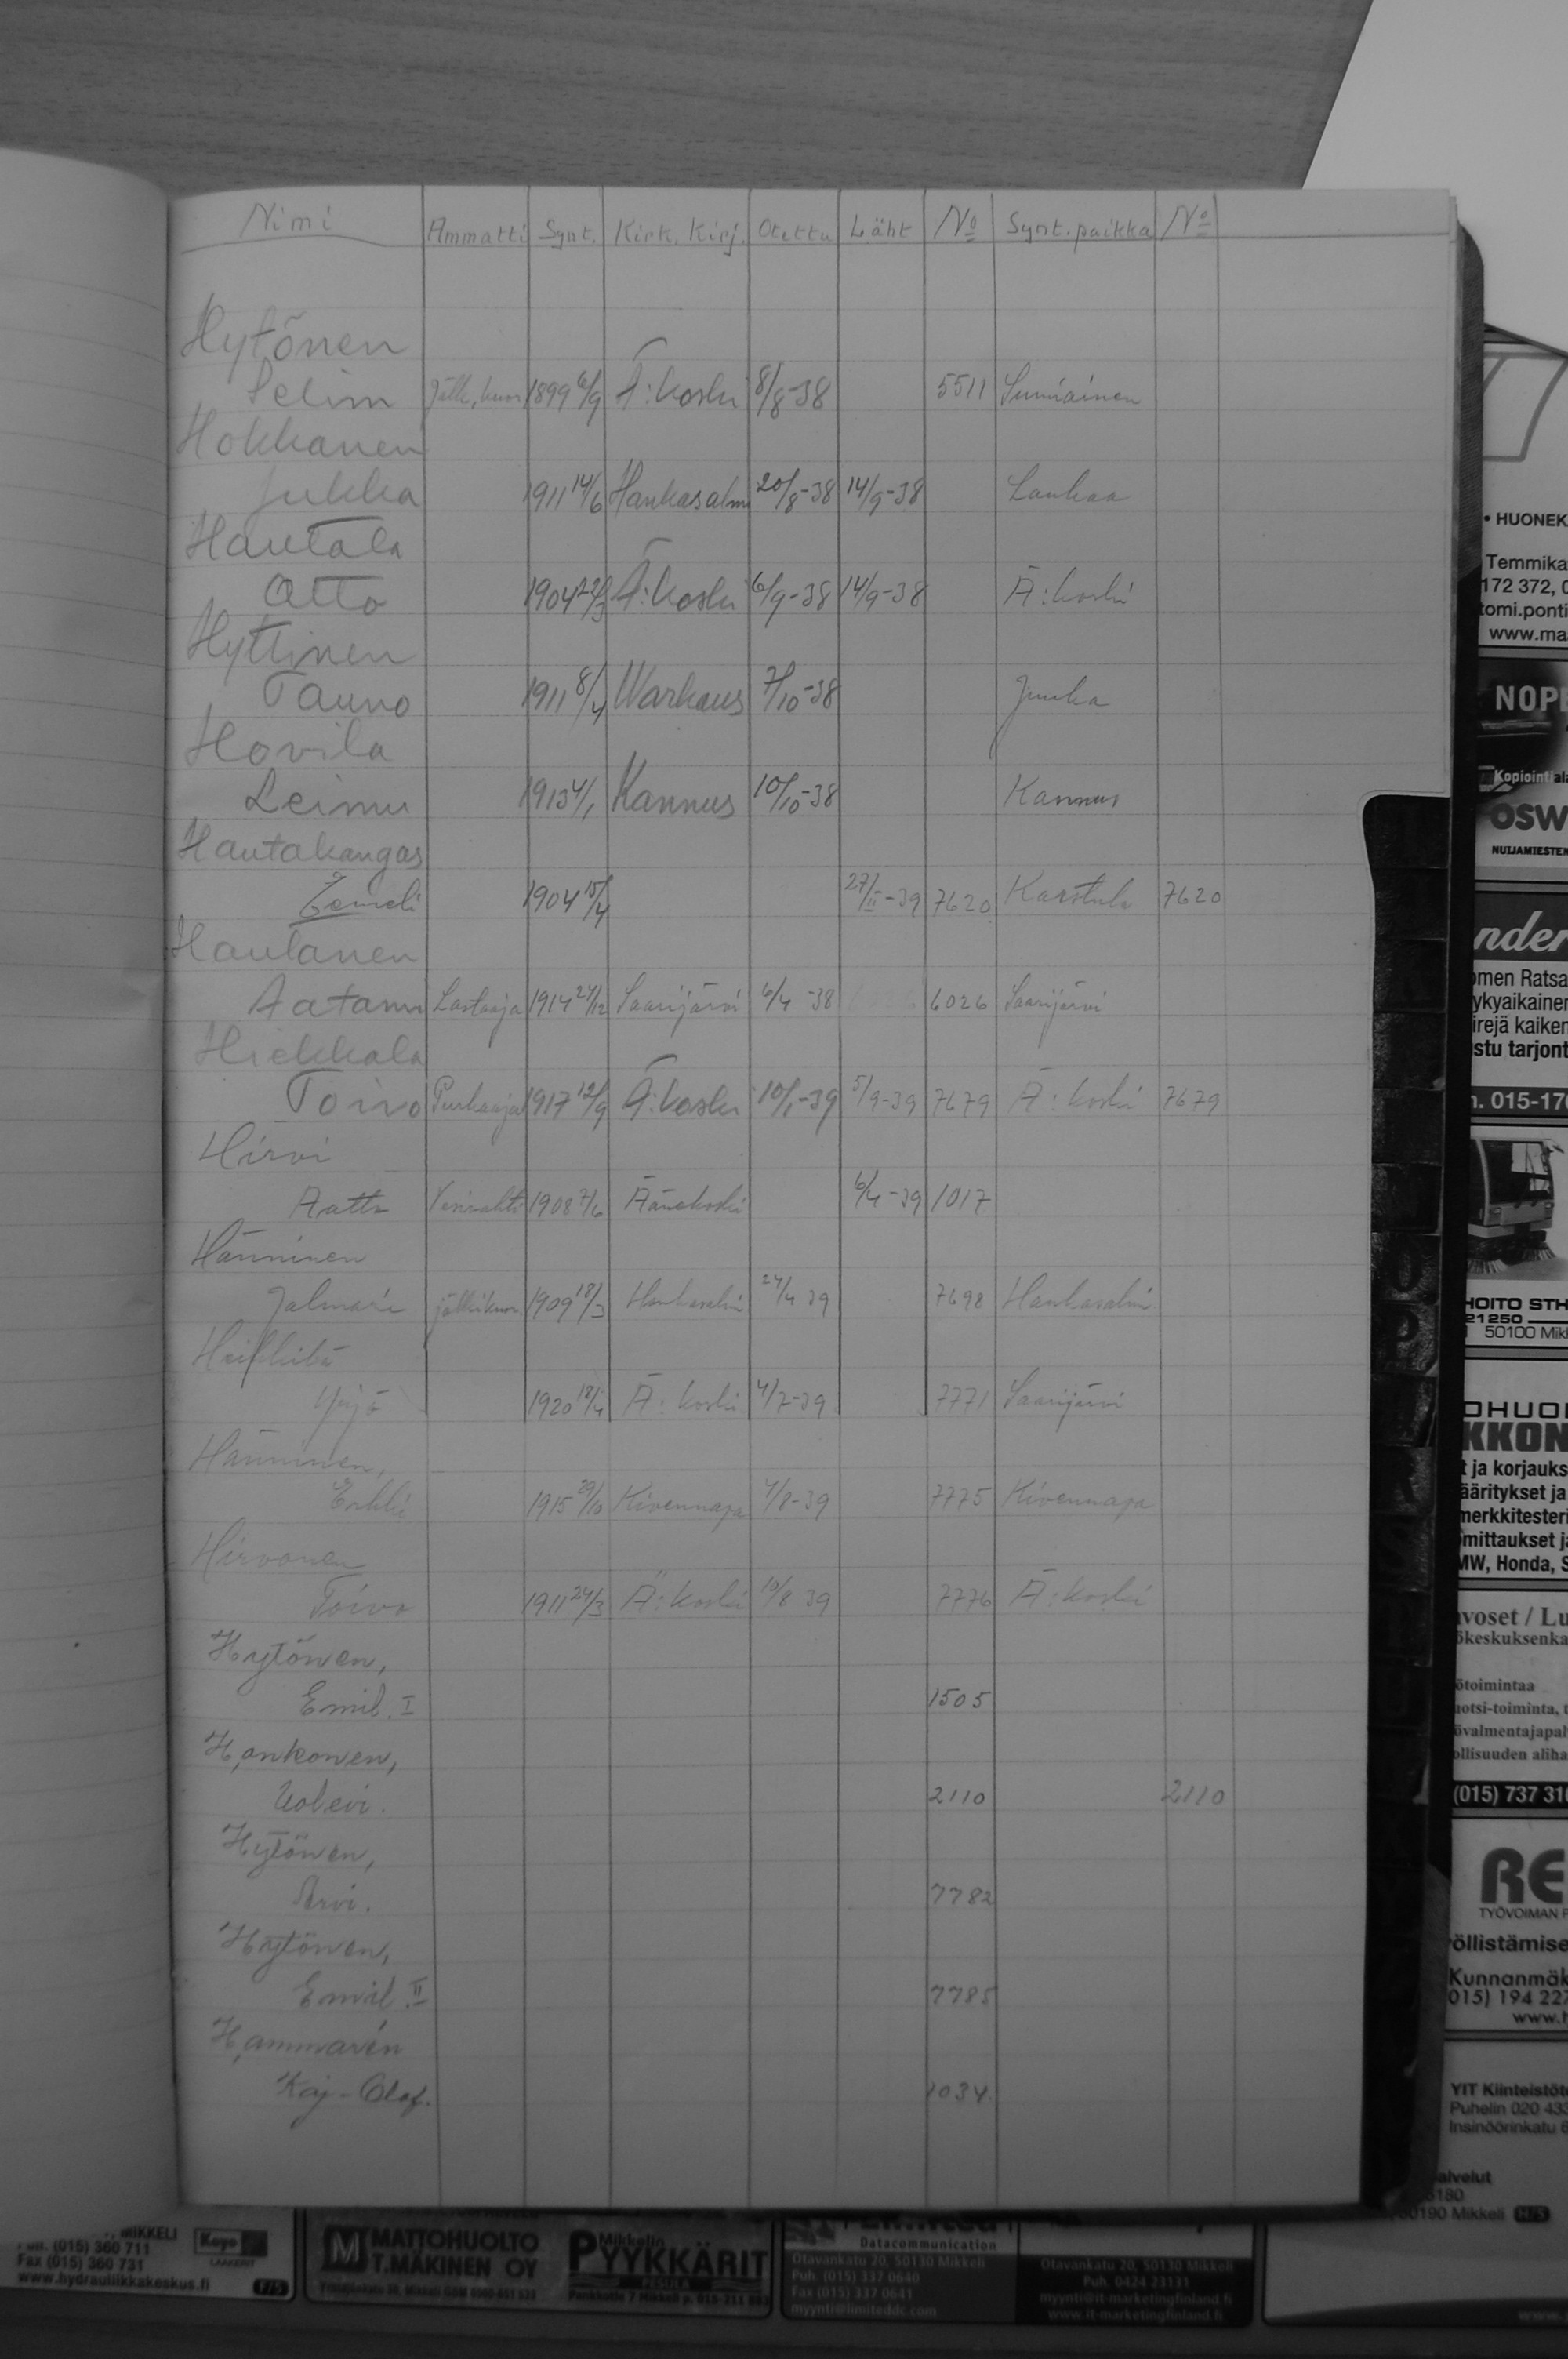 Nimi Ammatti Synt. Kirk. Kirj. Otettu Läht No Synt. paikka No
Hytönen
Selim 1899 6/9 Ä:koski 8/8-38 5511 Sumiainen
Hokkanen
Jukka 1911 14/6 Hankasalmi 20/8-38 14/9-38 Laukaa
Hautala
Otto 1904 Ä:koski 6/9-38 14/9-38 Ä:koski
Hyttinen
Tauno 1911 8/4 Warkaus 7/10-38 Juuka
Hovila
Leimu 1913 4/1 Kannus 10/10-38 Kannus
Hautakangas
Eemeli 1904 15/4 27/II-39 7620 Karstula 7620
Haulanen
Aatami Lastaaja 1914 24/12 Saarijärvi 6/4-38 6026 Saarijärvi
Hiekkala
Toivo Purkaaja 1917 12/9 Ä:koski 10/1-39 5/9-39 7679 Ä:koski 7679
Hirvi
Aatto 1908 7/6 Äänekoski 6/4-39 1017
Hänninen
Jalmari jälkikuor. 1909 18/3 Hankasalmi 24/4 39 7698 Hankasalmi
Heikkilä
Yrjö 1920 18/4 Ä:koski 4/7-39 7771 Saarijärvi
Hänninen,
Erkki 1915 29/10 Kivennapa 7775 Kivennapa
Hirvonen
Toivo 1911 24/3 Ä:koski 10/8 39 7776 Ä:koski
Hytönen,
Emil. I 1505
Honkonen,
Uolevi. 2110 2110
Hytönen,
Arvi. 7782
Hytönen,
Emil. II 7785
Hammarén
Kaj-Olof. 1034.
• HUONEK
Temmika
172 372, 0
tomi.ponti
www.ma
NOP
Kopiointiala
OSW
NUIJAMIESTEN
nder
omen Ratsa
ykyaikainen
irejä kaiken
stu tarjont
n. 015-170
HOITO STH
21250
50100 Mikk
OHUO
KKON
t ja korjauks
ääritykset ja
merkkitesteri
omittaukset ja
MW, Honda, S
avoset / Lu
ökeskuksenka
ötoimintaa
uotsi-toiminta, t
övalmentajapal
ollisuuden aliha
(015) 737 31
RE
TYÖVOIMAN P
öllistämise
Kunnanmäk
015) 194 227
www.h
YIT Kiinteistöte
Puhelin 020 433
Insinöörinkatu 6
alvelut
5180
50190 Mikkeli H/5
MIKKELI
Puh. (015) 360 711
Fax (015) 360 731
www.hydrauliikkakeskus.fi F/5
M MATTOHUOLTO
T.MÄKINEN OY
Mikkelin
PYYKKÄRIT
PESULA
Datacommunication
Otavankatu 20, 50130 Mikkeli
Puh. (015) 337 0640
Fax (015) 337 0641
myynti@limiteddc.com
Otavankatu 20, 50130 Mikkeli
Puh. 0424 23131
myynti@it-marketingfinland.fi
www.it-marketingfinland.fi